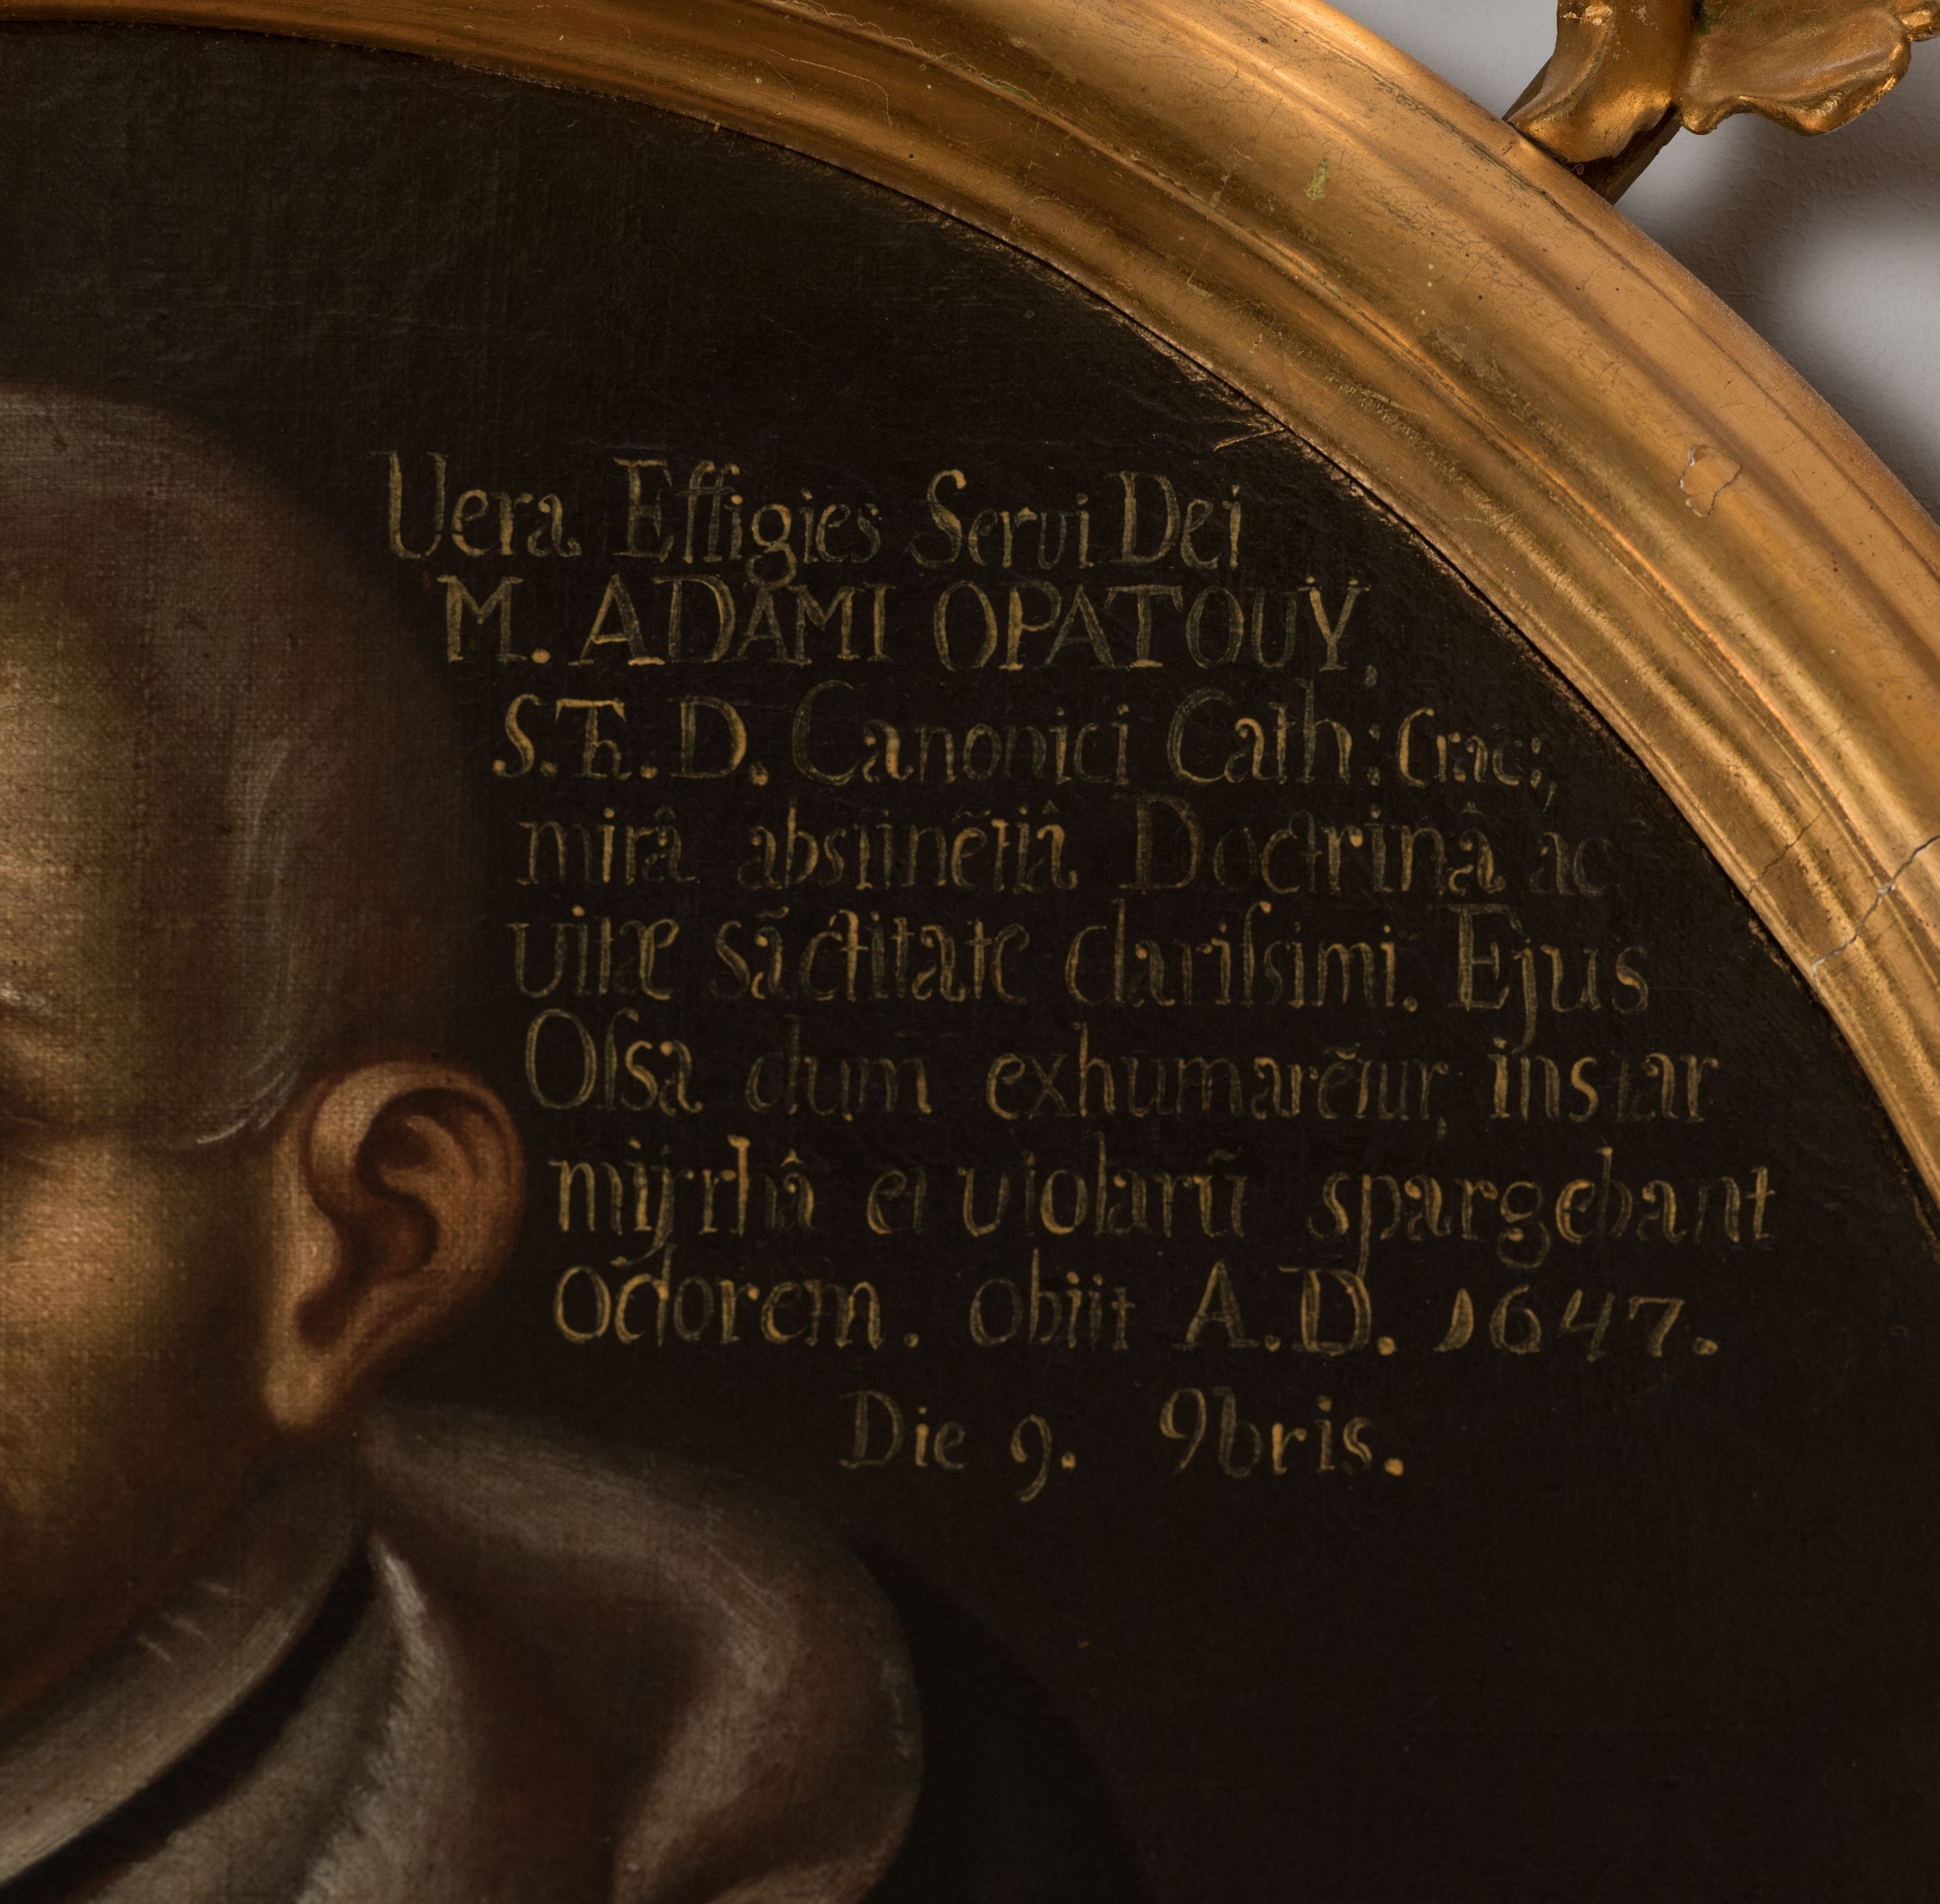 Uera Effigies Servi Dei
M. ADAMI OPATOUŸ,
S.Th.D. Canonici Cath: Crac:,
mirâ abstinẽtiâ Doctrinâ ac
uitæ sãctitate clariſsimi. Ejus
Oſsa dum exhumarẽtur, instar
mijrrhâ et uiolarũ spargebant
Odorem. obiit A.D. 1647.
Die 9. 9bris.